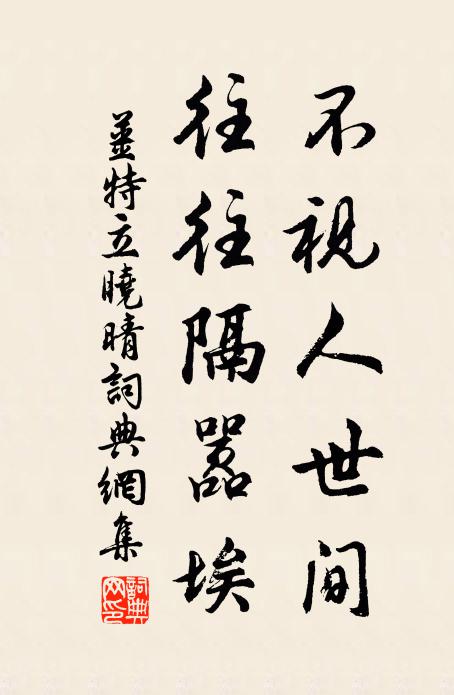 不視人世間
往往隔囂埃
薑特立曉晴詞典網集
詞典
网印